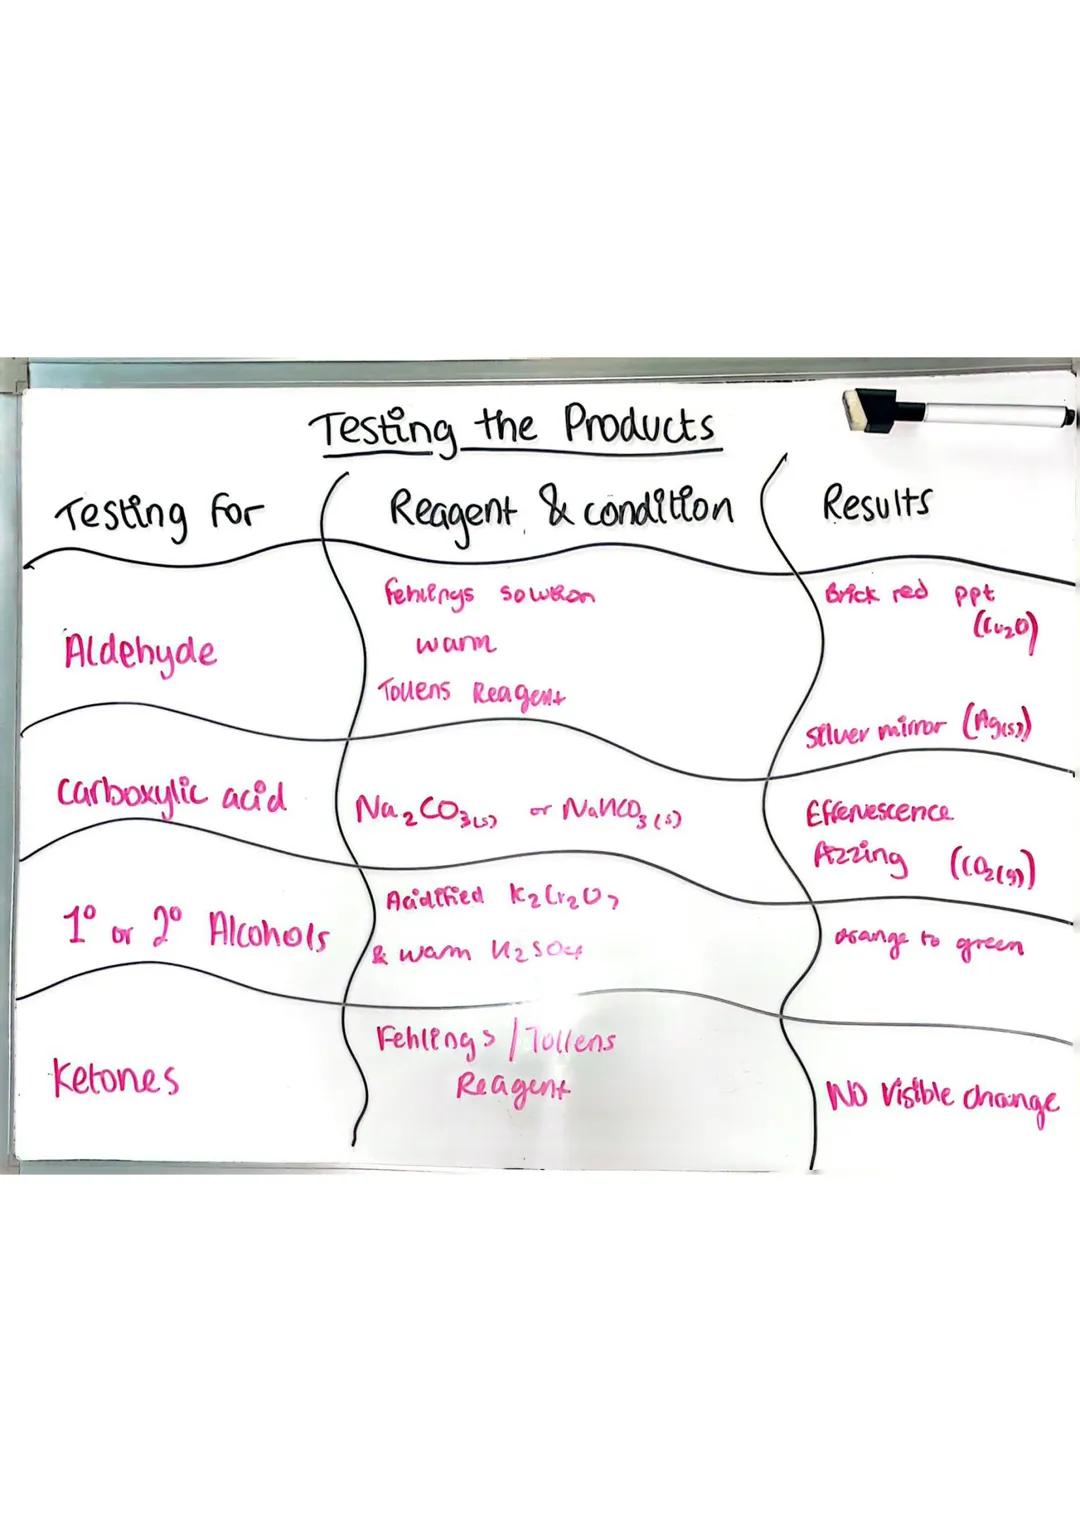 Testing the Products
Testing for
Reagent & condition
Results
Aldehyde
Fehlings solution
warm
Tollens Reagent
Brick red ppt
(Cu₂O)
Silver mirror (Ag(s))
carboxylic acid
Na₂CO₃(s) or NaHCO₃(s)
Effervescence
fizzing (CO₂(g))
1° or 2° Alcohols
Acidified K₂Cr₂O₇
& warm H₂SO₄
orange to green
Ketones
Fehlings / Tollens
Reagent
NO Visible change